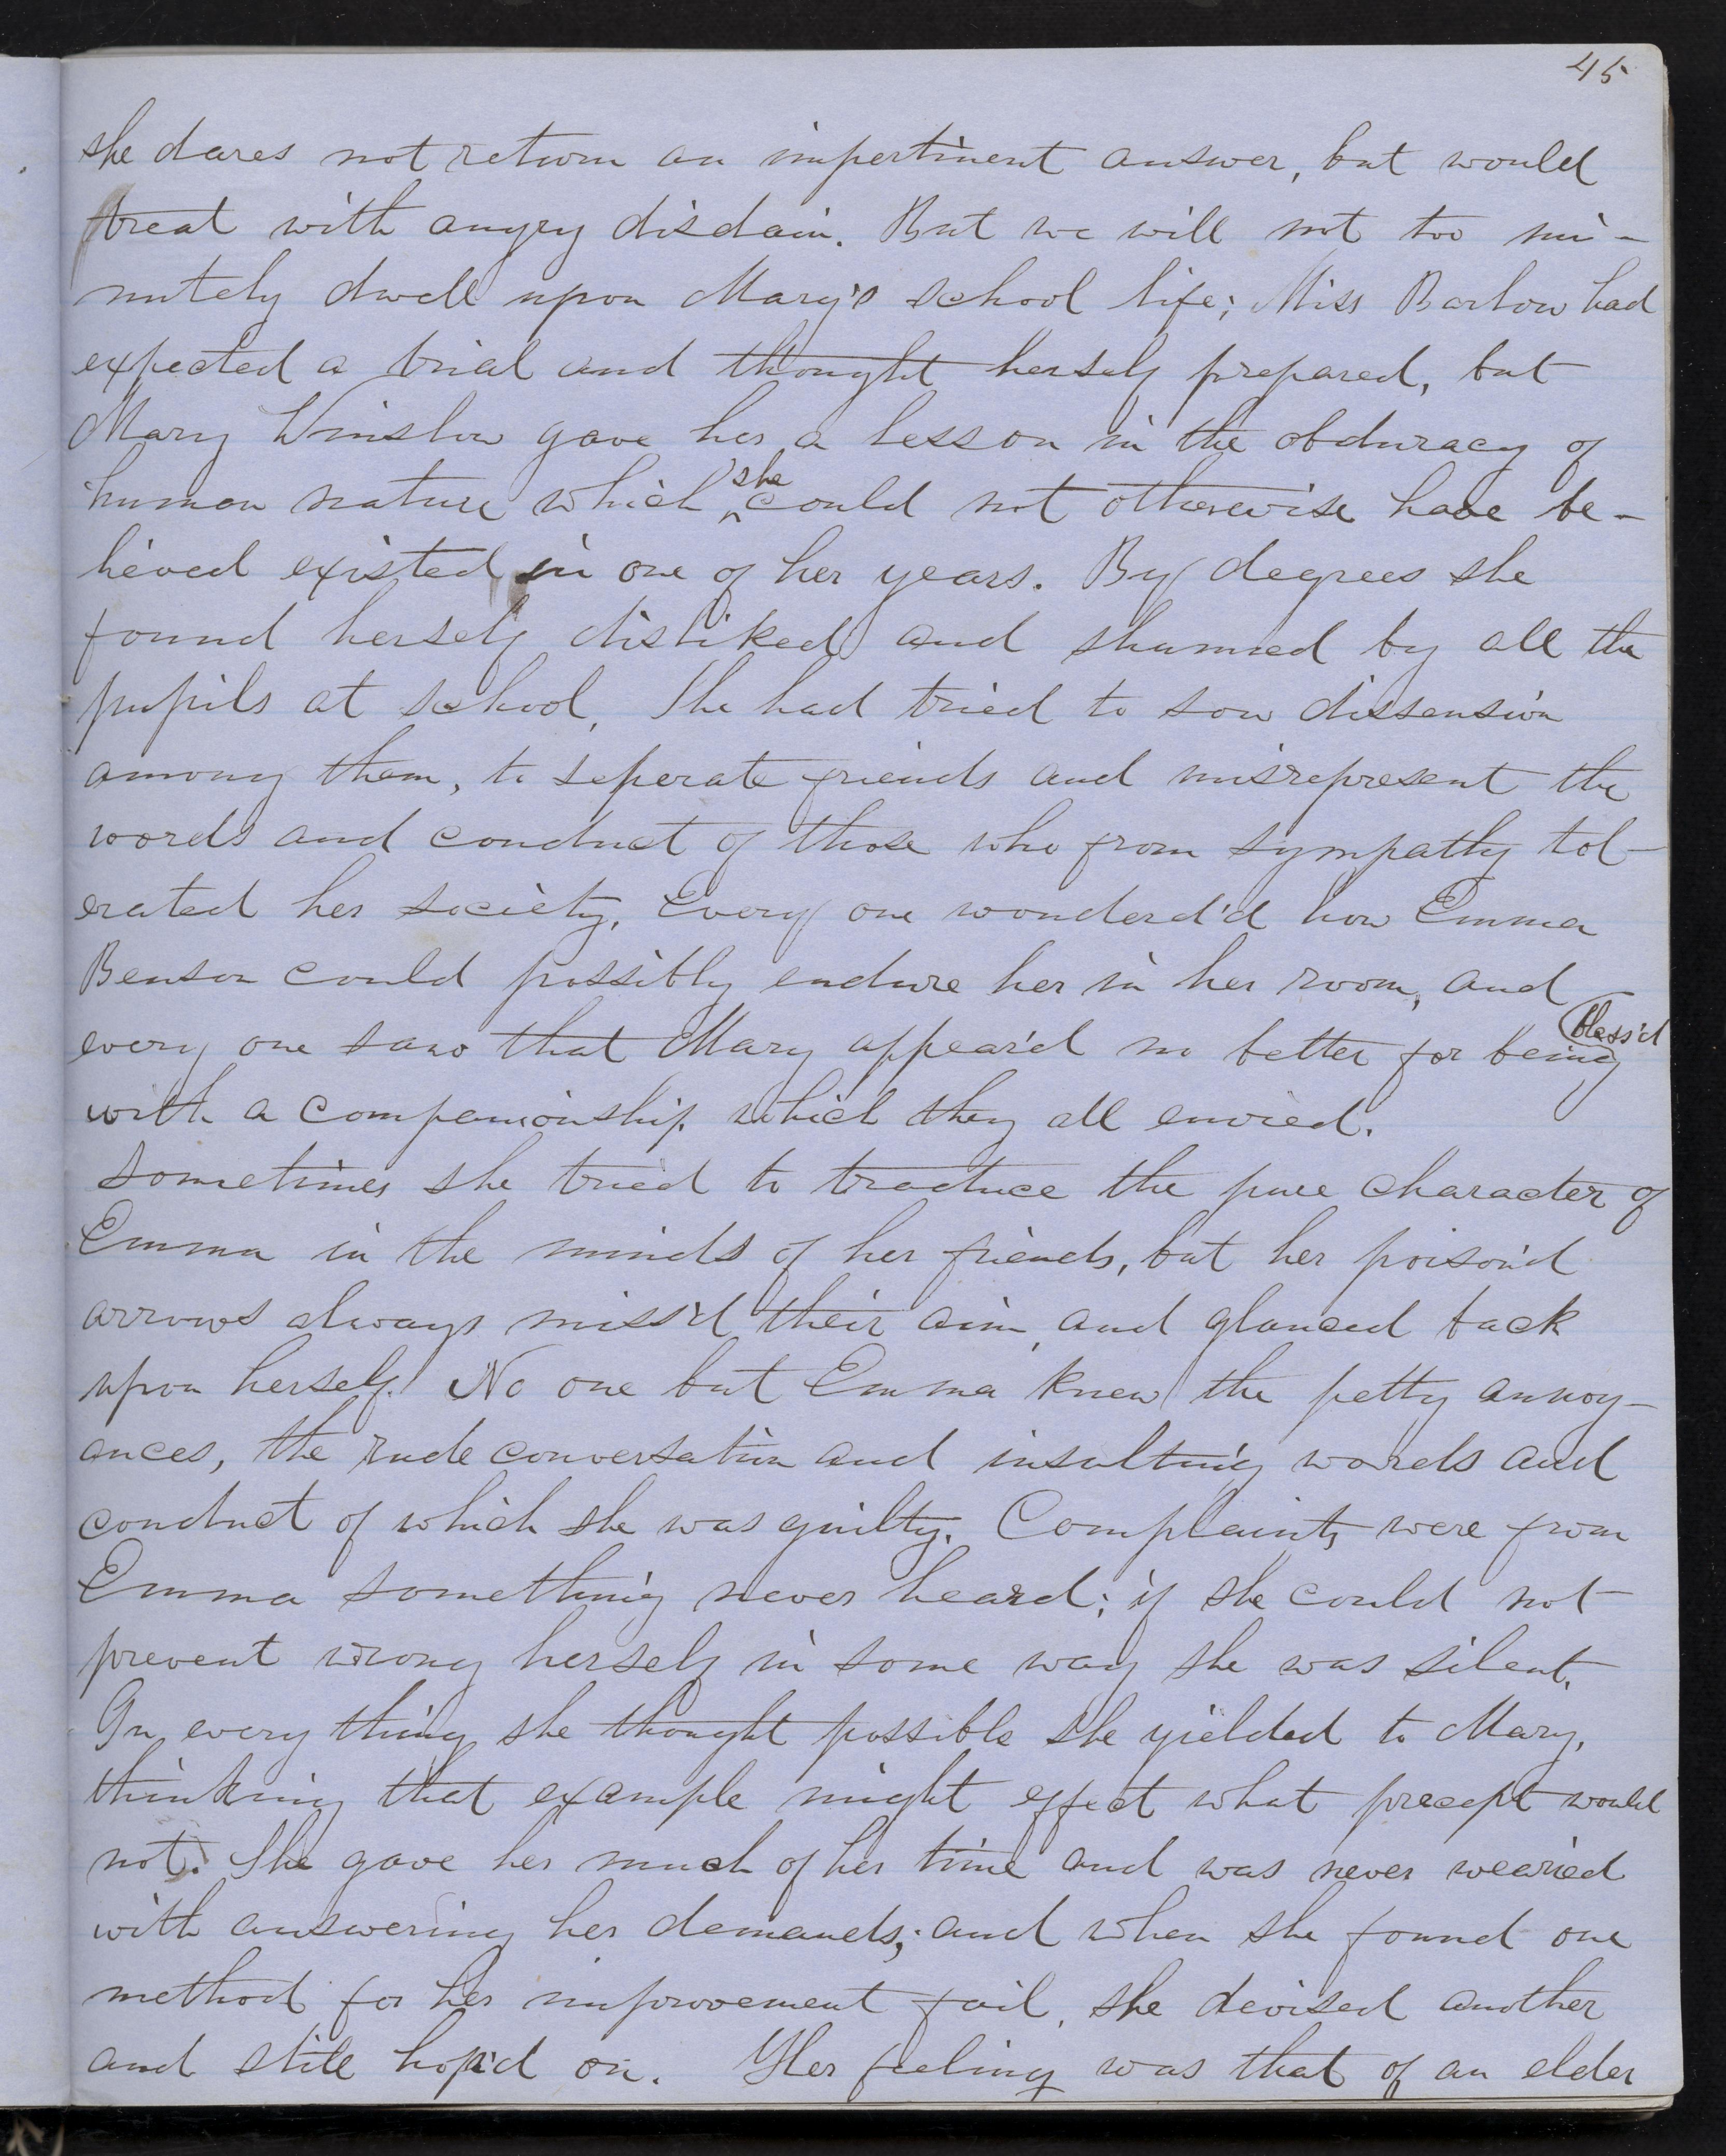 45
she dares not return an impertinent answer, but would
treat with angry disdain. But we will not too mi-
nutely dwell upon Mary's school life; Miss Barlow had
expected a trial and thought herself prepared, but
Mary Winslow gave her a lesson in the obduracy of
human nature which ^she could not otherwise have be-
lieved existed in one of her years. By degrees she
found herself disliked and shunned by all the
pupils at school. She had tried to sow dissension
among them, to seperate friends and misrepresent the
words and conduct of those who from sympathy tol-
erated her society. Every one wonderd'd how Emma
Benson could possibly endure her in her room, and
every one saw that Mary appear'd no better for being bless'd
with a companionship which they all envied.
Sometimes she tried to traduce the pure character of
Emma in the minds of her friends, but her poison'd
arrows always miss'd their aim, and glanced back
upon herself. No one but Emma knew the petty annoy-
ances, the rude conversation and insulting words and
conduct of which she was guilty. Complaints were from
Emma something never heard; if she could not
prevent wrong herself in some way she was silent.
In every thing she thought possible she yielded to Mary,
thinking that example might effect what precept would
not. She gave her much of her time and was never wearied
with answering her demands; and when she found one
method for her improvement fail, she devised another
and still hop'd on. Her feeling was that of an elder